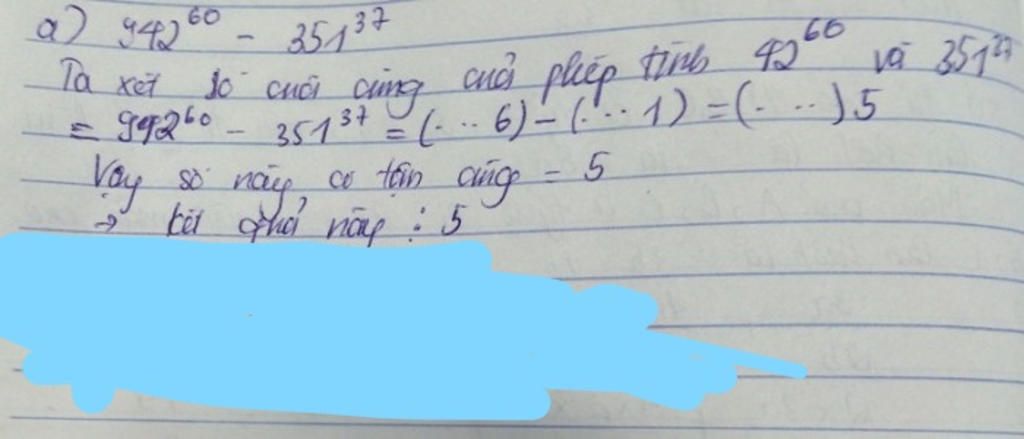 a) 942^60 - 351^37
Ta xét số cuối cùng cuả phép tính 42^60 và 351^37
= 942^60 - 351^37 = (... 6) - (... 1) = (. ..) 5
Vậy số này có tận cùng = 5
→ kết quả này ⋮ 5